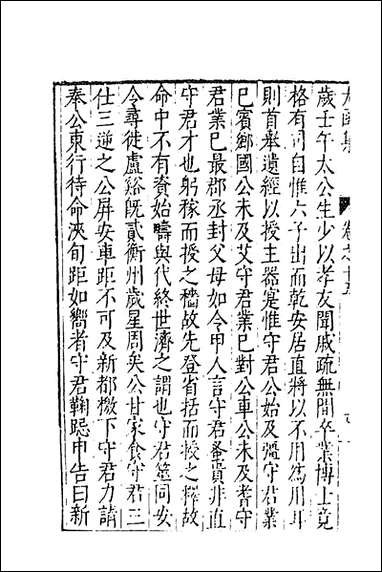 太函集 卷之十五
歲壬午太公生少以孝友聞戚疏無間卒業博士竟
格有司自惟六子出而乾安居直將以不用為用耳
則首舉遺經以授主器寔惟守君公始及彊守君業
已賓鄉國公未及艾守君業已對公車公未及耆守
君業已最郡丞封父母如令甲人言守君蚤貴非直
守君才也躬稼而授之穡故先登省括而授之釋故
命中不有賁始疇與代終世濟之謂也守君筮同安
令尋徙盧谿既貳衡州歲星周矣公甘家食守君三
仕三逆之公屏安車距不可及新都檄下守君力請
奉公東行待命浹旬距如嚮者守君鞠跽申告曰新